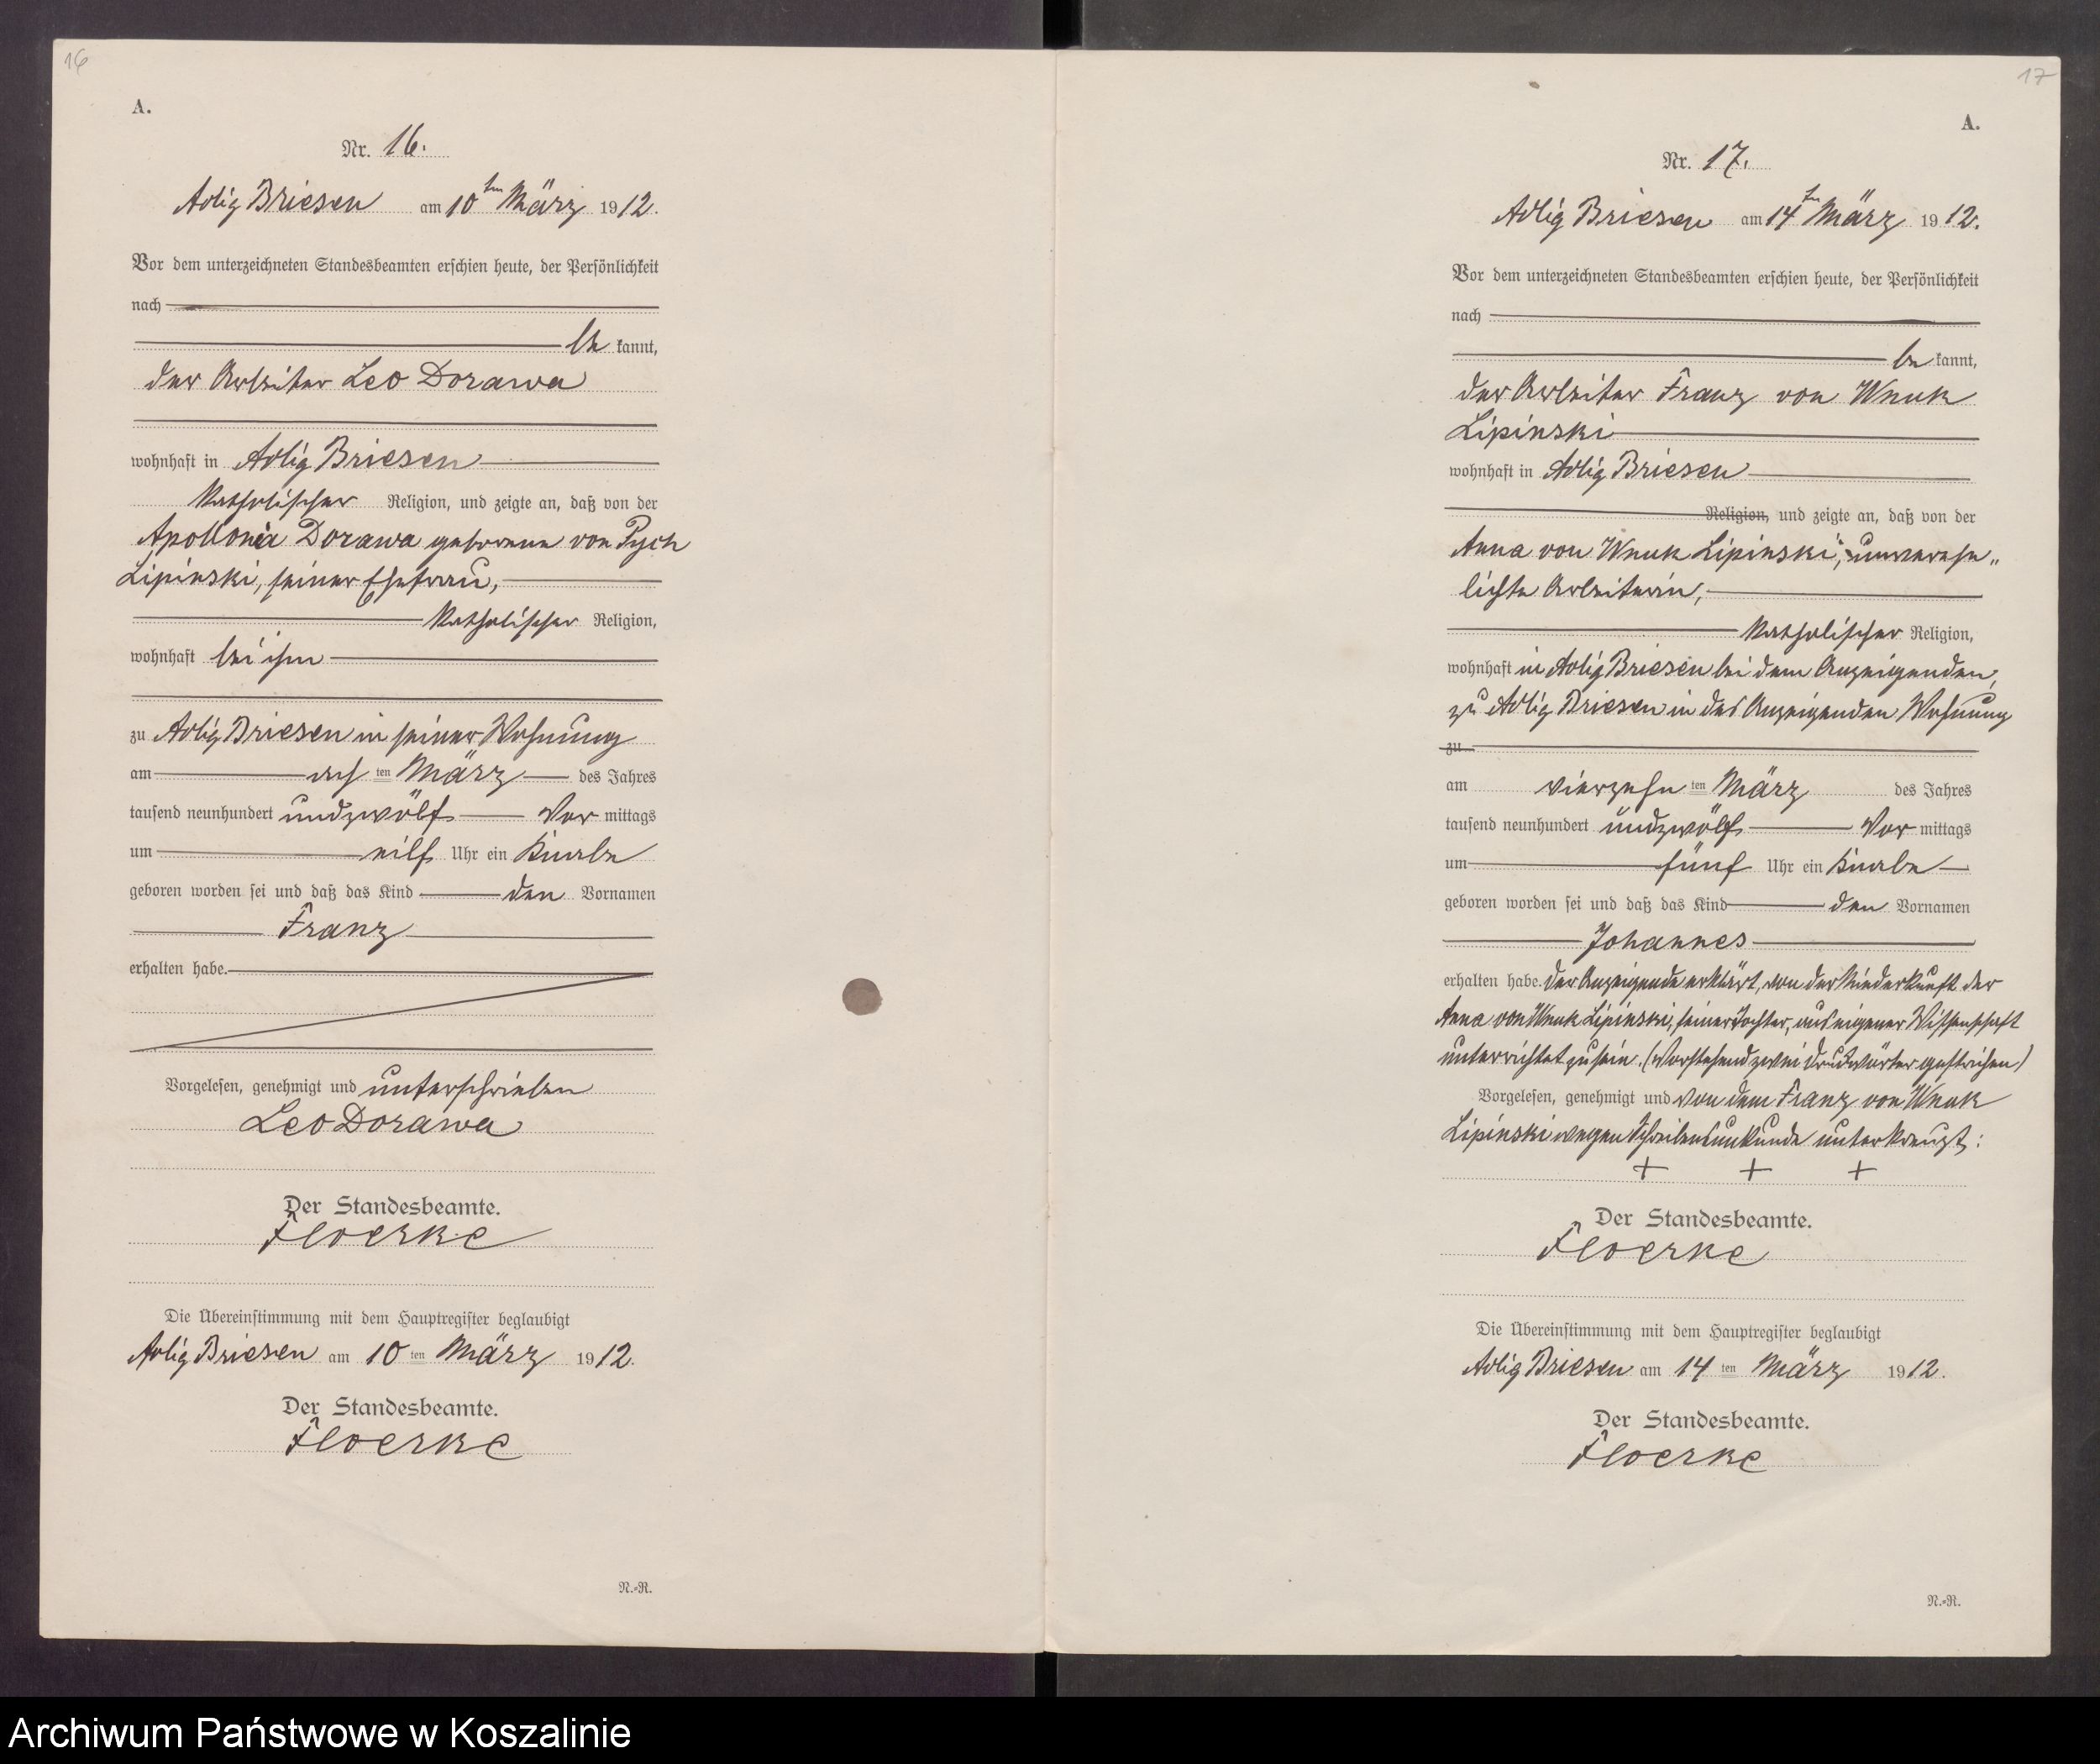 16
A.
Nr. 16.
Adlig Briesen am 10ten März 1912.
Vor dem unterzeichneten Standesbeamten erschien heute, der Persönlichkeit
nach
be kannt,
der Arbeiter Leo Dorawa
wohnhaft in Adlig Briesen
katholischer Religion, und zeigte an, daß von der
Apollonia Dorawa geborenen von Pych
Lipinski, seiner Ehefrau,
katholischer Religion,
wohnhaft bei ihm
zu Adlig Briesen in seiner Wohnung
am acht ten März des Jahres
tausend neunhundert undzwölf Vor mittags
um elf Uhr ein Knabe
geboren worden sei und daß das Kind den Vornamen
Franz
erhalten habe.
Vorgelesen, genehmigt und unterschrieben
Leo Dorawa
Der Standesbeamte.
Floerke
Die Übereinstimmung mit dem Hauptregister beglaubigt
Adlig Briesen am 10 ten März 1912.
Der Standesbeamte.
Floerke
N.-R.
17
A.
Nr. 17.
Adlig Briesen am 14ten März 1912.
Vor dem unterzeichneten Standesbeamten erschien heute, der Persönlichkeit
nach
be kannt,
der Arbeiter Franz von Wnuk
Lipinski
wohnhaft in Adlig Briesen
Religion, und zeigte an, daß von der
Anna von Wnuk Lipinski, unverehe„
lichte Arbeiterin,
katholischer Religion,
wohnhaft in Adlig Briesen bei dem Anzeigenden,
zu Adlig Briesen in des Anzeigenden Wohnung
zu
am vierzehn ten März des Jahres
tausend neunhundert undzwölf Vor mittags
um fünf Uhr ein Knabe
geboren worden sei und daß das Kind den Vornamen
Johannes
erhalten habe. Der Anzeigende erklärt, von der Niederkunft der
Anna von Wnuk Lipinski, seiner Tochter, aus eigener Wissenschaft
unterrichtet zu sein. (Vorstehend zwei Druckwörter gestrichen)
Vorgelesen, genehmigt und von dem Franz von Wnuk
Lipinski wegen Schreibensunkunde unterkreuzt:
+ + +
Der Standesbeamte.
Floerke
Die Übereinstimmung mit dem Hauptregister beglaubigt
Adlig Briesen am 14 ten März 1912.
Der Standesbeamte.
Floerke
N.-R.
Archiwum Państwowe w Koszalinie